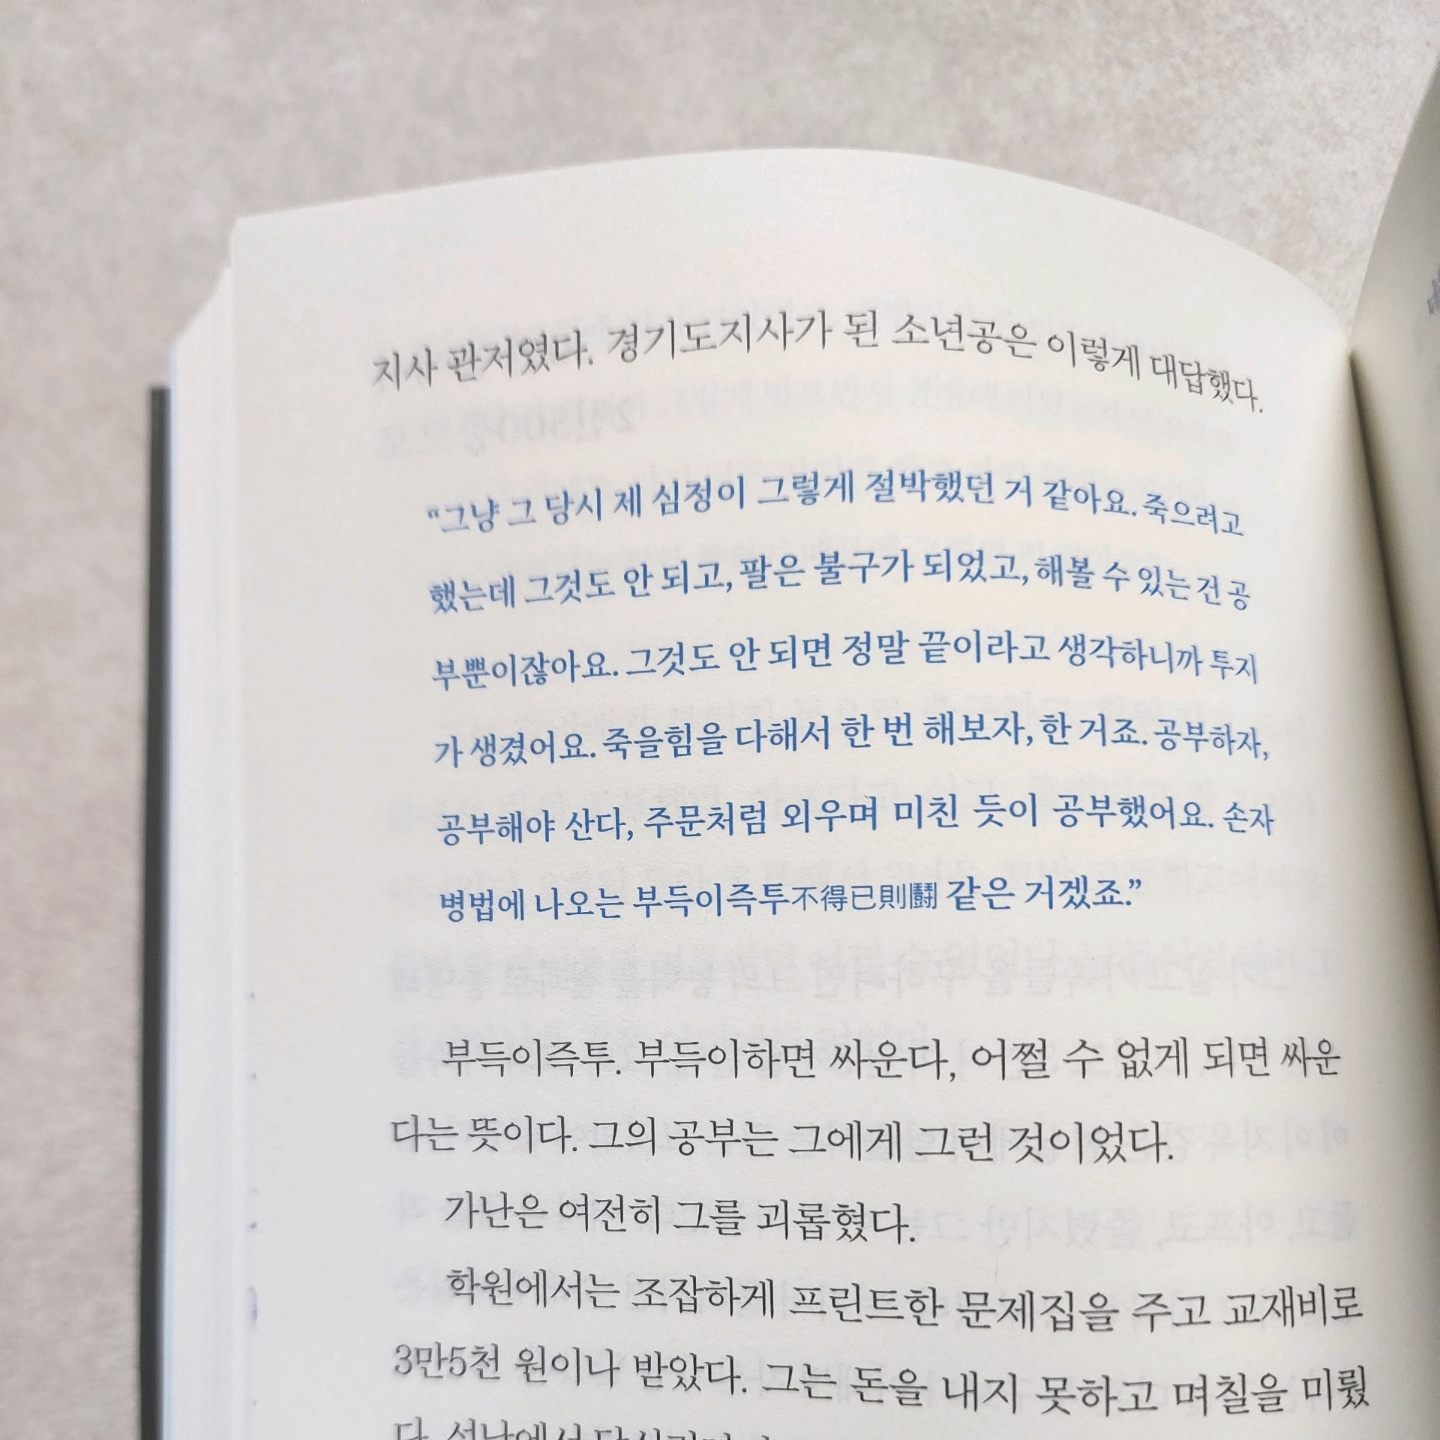 지사 관저였다. 경기도지사가 된 소년공은 이렇게 대답했다.
“그냥 그 당시 제 심정이 그렇게 절박했던 거 같아요. 죽으려고
했는데 그것도 안 되고, 팔은 불구가 되었고, 해볼 수 있는 건 공
부뿐이잖아요. 그것도 안 되면 정말 끝이라고 생각하니까 투지
가 생겼어요. 죽을힘을 다해서 한 번 해보자, 한 거죠. 공부하자,
공부해야 산다, 주문처럼 외우며 미친 듯이 공부했어요. 손자
병법에 나오는 부득이즉투不得已則鬪 같은 거겠죠.”
부득이즉투. 부득이하면 싸운다, 어쩔 수 없게 되면 싸운
다는 뜻이다. 그의 공부는 그에게 그런 것이었다.
가난은 여전히 그를 괴롭혔다.
학원에서는 조잡하게 프린트한 문제집을 주고 교재비로
3만5천 원이나 받았다. 그는 돈을 내지 못하고 며칠을 미뤘
다. 성남에서